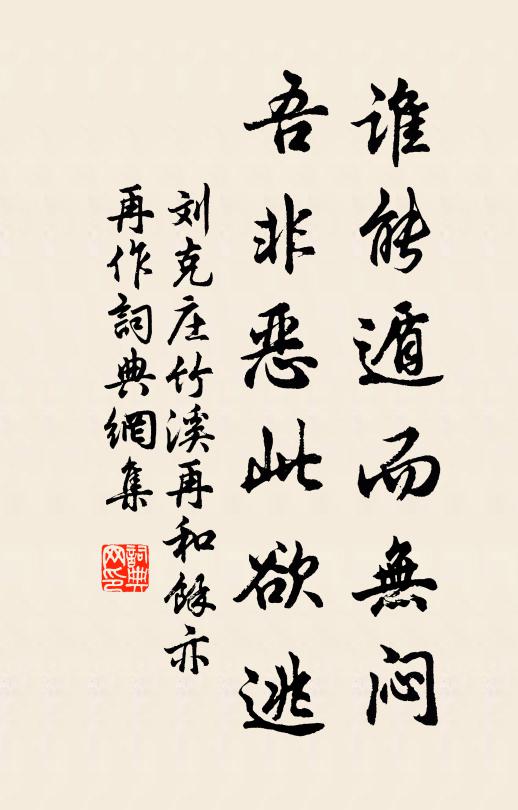 谁能遁而無闷
吾非恶此欲逃
刘克庄竹溪再和馀亦
再作詞典網集
詞典网印